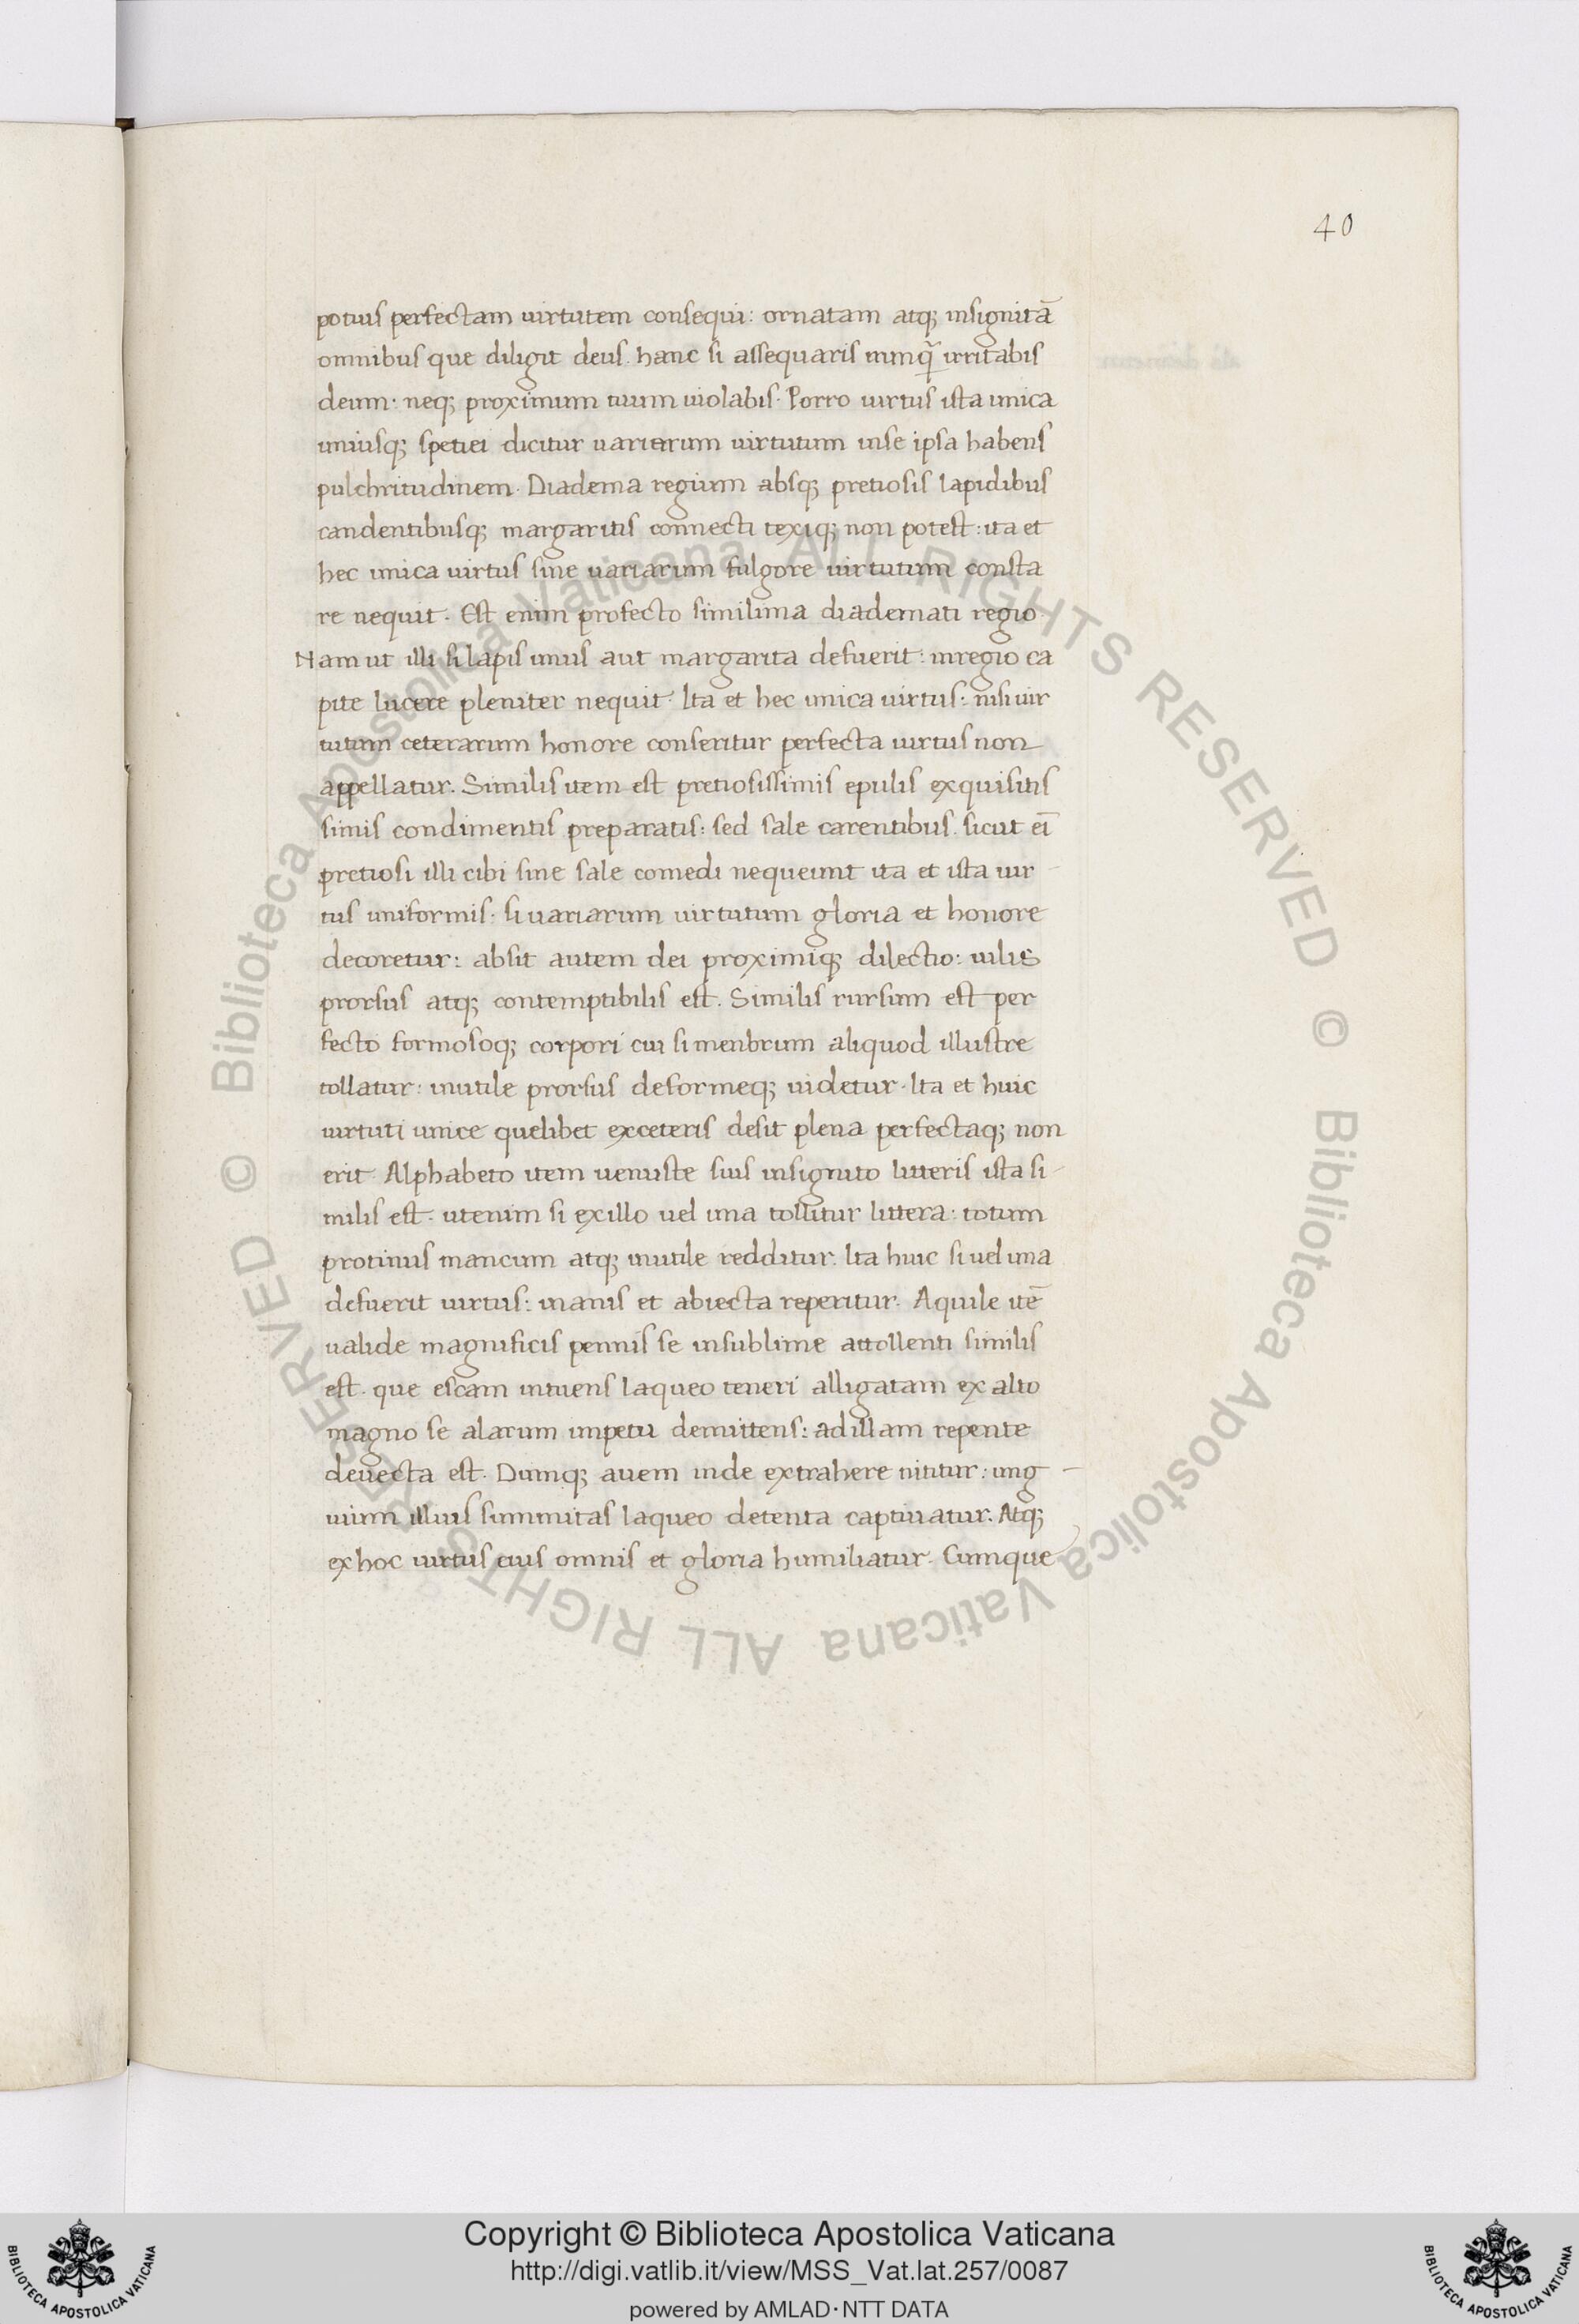 40
potius perfectam uirtutem consequi: ornatam atq; insignitā
omnibus que diligit deus. hanc si assequaris nunq̄ irritabis
deum: neq; proximum tuum uiolabis. Porro uirtus ista unica
uniusq; spetiei dicitur uariarum uirtutum inse ipsa habens
pulchritudinem. Diadema regium absq; pretiosis lapidibus
candentibusq; margaritis connecti texiq; non potest: ita et
hec unica uirtus sine uariarum fulgore uirtutum consta
re nequit. Est enim profecto similima diademati regio.
Nam ut illi si lapis unus aut margarita defuerit: inregio ca
pite lucere pleniter nequit. Ita et hec unica uirtus: nisi uir
tutum ceterarum honore conseritur perfecta uirtus non
appellatur. Similis item est pretiosissimis epulis exquisitis
simis condimentis preparatis: sed sale carentibus. sicut eī
pretiosi illi cibi sine sale comedi nequeunt ita et ista uir
tus uniformis. si uariarum uirtutum gloria et honore
decoretur: absit autem dei proximiq; dilectio: uilis
prorsus atq; contemptibilis est. Similis rursum est per
fecto formosoq; corpori cui si menbrum aliquod illustre
tollatur: inutile prorsus deformeq; uidetur. Ita et huic
uirtuti unice quelibet exceteris desit plena perfectaq; non
erit. Alphabeto item uenuste suis insignito litteris ista si-
milis est. utenim si exillo uel una tollitur littera: totum
protinus mancum atq; inutile redditur. Ita huic si uel una
defuerit uirtus: inanis et abiecta reperitur. Aquile itē
ualide magnificis pennis se insublime attollenti similis
est. que escam intuens laqueo teneri alligatam ex alto
magno se alarum impetu demittens: ad illam repente
deuecta est. Dumq; auem inde extrahere nititur: ung-
uium illius summitas laqueo detenta captiuatur. Atq;
ex hoc uirtus eius omnis et gloria humiliatur. Cumque
© Biblioteca Apostolica Vaticana ALL RIGHTS RESERVED
© Biblioteca Apostolica Vaticana ALL RIGHTS RESERVED
BIBLIOTECA APOSTOLICA VATICANA
Copyright © Biblioteca Apostolica Vaticana
http://digi.vatlib.it/view/MSS_Vat.lat.257/0087
powered by AMLAD·NTT DATA
BIBLIOTECA APOSTOLICA VATICANA